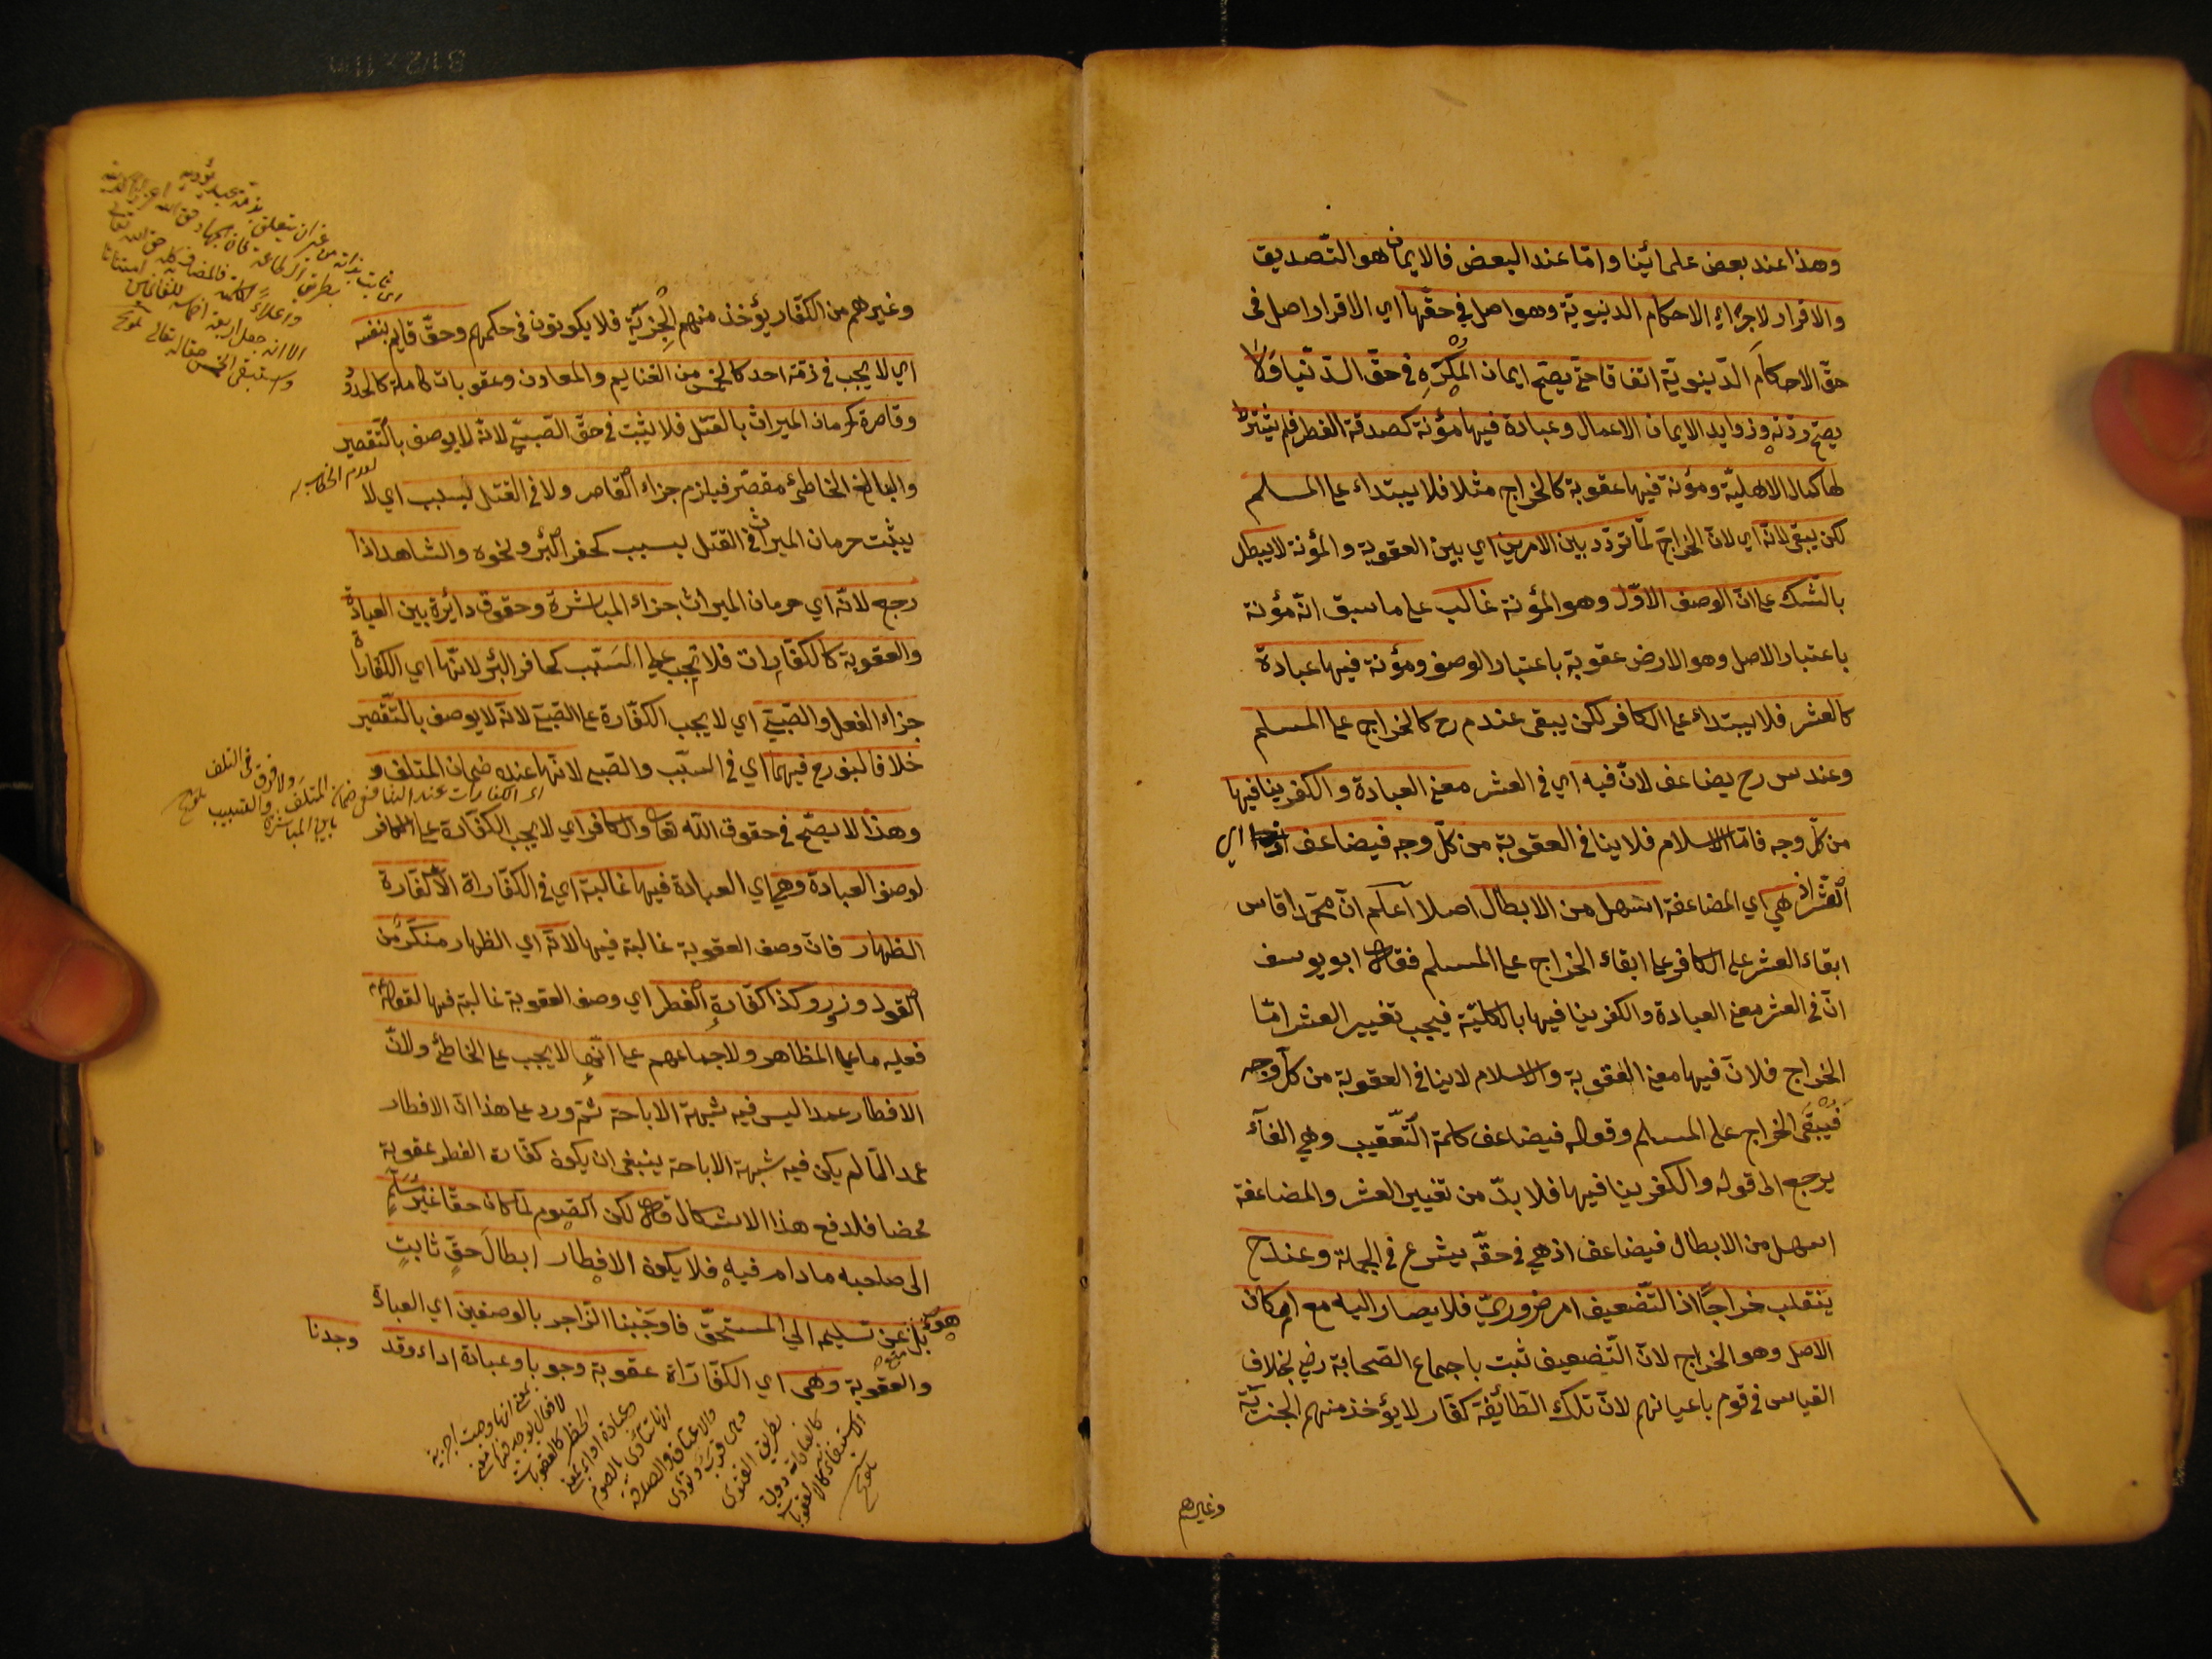 وهذا عند بعض علمائينا وامّا عند البعض فالايمان هو التّصديق
والاقرار لاجراء الاحكام الدنيويّة وهو اصل في حقّها اي الاقرار اصل فى
حقّ الاحكام الدّينويّة اتفاقا حتّى يصحّ ايمان المكره في حقّ الدّنيا ولا
يصحّ ردّته وزوايد الايمان الاعمال وعبادة فيها مؤنة كصدقة الفطر فلم يشترط
لها كمال الاهليّة ومؤنة فيها عقوبة كالخراج مثلا فلا يبتداء على المسلم
لكن يبقى لانّه اي لانّ الخراج لمّا تردّد بين الامرين اي بين العقوبة والمؤنة لا يبطل
بالشّك على انّ الوصف الاوّل وهو المؤنة غالب على ما سبق انّه مؤنة
باعتبار الاصل وهو الارض عقوبة باعتبار الوصف ومؤنة فيها عبادة
كالعشر فلا يبتداء على الكافر لكن يبقى عند م رح كالخراج على المسلم
وعند س رح يضاعف لانّ فيه اي في العشر معنى العبادة والكفر ينافيها
من كلّ وجه فامّا الاسلام فلا ينافى العقوبة من كلّ وجه فيضاعف اي
العشر اذ هي اي المضاعفة اسهل من الابطال اصلا اعلم انّ محمّدا قاس
ابقاء العشر على الكافر على ابقاء الخراج على المسلم فقال ابو يوسف
انّ في العشر معنى العبادة والكفر ينافيها بالكليّة فيجب تغيير العشر امّا
الخراج فلانّ فيها معنى العقوبة والاسلام لا ينافى العقوبة من كلّ وجه
فيبقى الخراج على المسلم وقوله فيضاعف كلمة التّعقيب وهي الفاء
يرجع الى قوله والكفر ينافيها فلا بدّ من تغيير العشر والمضاعفة
اسهل من الابطال فيضاعف اذ هي في حقّه يشرع في الجملة وعند ح
ينقلب خراجاً اذ التّضعيف امر ضروريّ فلا يصار اليه مع امكان
الاصل وهو الخراج لانّ التّضعيف ثبت باجماع الصّحابة رض بخلاف
القياس في قوم باعيانهم لانّ تلك الطّائفة كفّار لا يؤخذ منهم الجزية
وغيرهم
وغيرهم من الكفّار يؤخذ منهم الجزيّة فلا يكونون فى حكمهم وحقّ قايم بنفسه
اي لا يجب في ذمّة احد كالخمس من الغنايم والمعادن وعقوبات كاملة كالحدود
وقاصرة كحرمان الميراث بالقتل فلا يثبت في حقّ الصّبيّ لانّه لا يوصف بالتّقصير
والبالغ الخاطئ مقصّر فيلزم جزاء القاصر ولا في القتل بسبب اي لا
يثبت حرمان الميراث في القتل بسبب كحفر البئر ونحوه والشاهد اذا
رجع لانّه اي حرمان الميراث جزاء المباشرة وحقوق دائرة بين العبادة
والعقوبة كالكفّارات فلا تجب على المسبّب كحافر البئر لانّها اي الكفّاراة
جزاء الفعل والصّبيّ اي لا يجب الكفّارة على الصّبيّ لانّه لا يوصف بالتّقصير
خلافا لبو رح فيهما اي في السبّب والصّبي لانّها عنده ضمان المتلف و
وهذا لا يصحّ في حقوق اللّه تعالى والكافر اي لا يجب الكفّارة على الكافر
لوصف العبادة وهي اي العبادة فيها غالبة اي في الكفّاراة الّا كفّارة
الظهار فانّ وصف العقوبة غالبة فيها لانّه اي الظهار منكر من
القول وزور وكذا كفّارة الفطر اي وصف العقوبة غالبة فيها لقوله ع م
فعليه ما على المظاهر ولاجماعهم على انّها لا يجب على الخاطئ ولانّ
الافطار عمدا ليس فيه شبهة الاباحة ثمّ ورد على هذا انّ الافطار
عمدا لمّا لم يكن فيه شبهة الاباحة ينبغى ان يكون كفّارة الفطر عقوبة
محضا فلدفع هذا الاشكال قال لكن الصّوم لمّا كان حقّا غير مسلّم
الى صاحبه مادام فيه فلا يكون الافطار ابطال حقّ ثابت
بل هو منع عن تسليمه الي المستحقّ فاوجبنا الزّاجر بالوصفين اي العبادة
والعقوبة وهى اي الكفّاراة عقوبة وجوبا وعبادة اداء وقد وجدنا
لعدم الخطاب
اى الكفارات عند الشافعى ضمان المتلف ولا فرق فى التلف
بين المباشرة والتسبيب تلويح